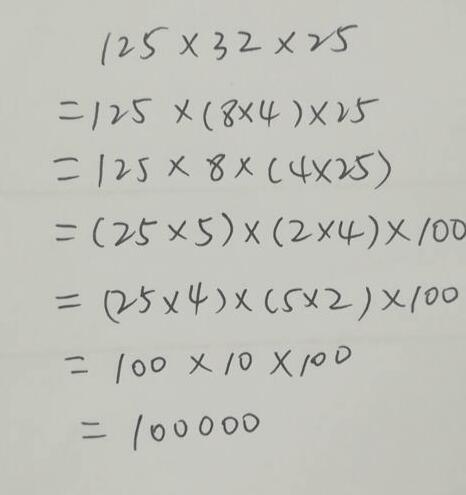 125×32×25
=125×(8×4)×25
=125×8×(4×25)
=(25×5)×(2×4)×100
=(25×4)×(5×2)×100
=100×10×100
=100000